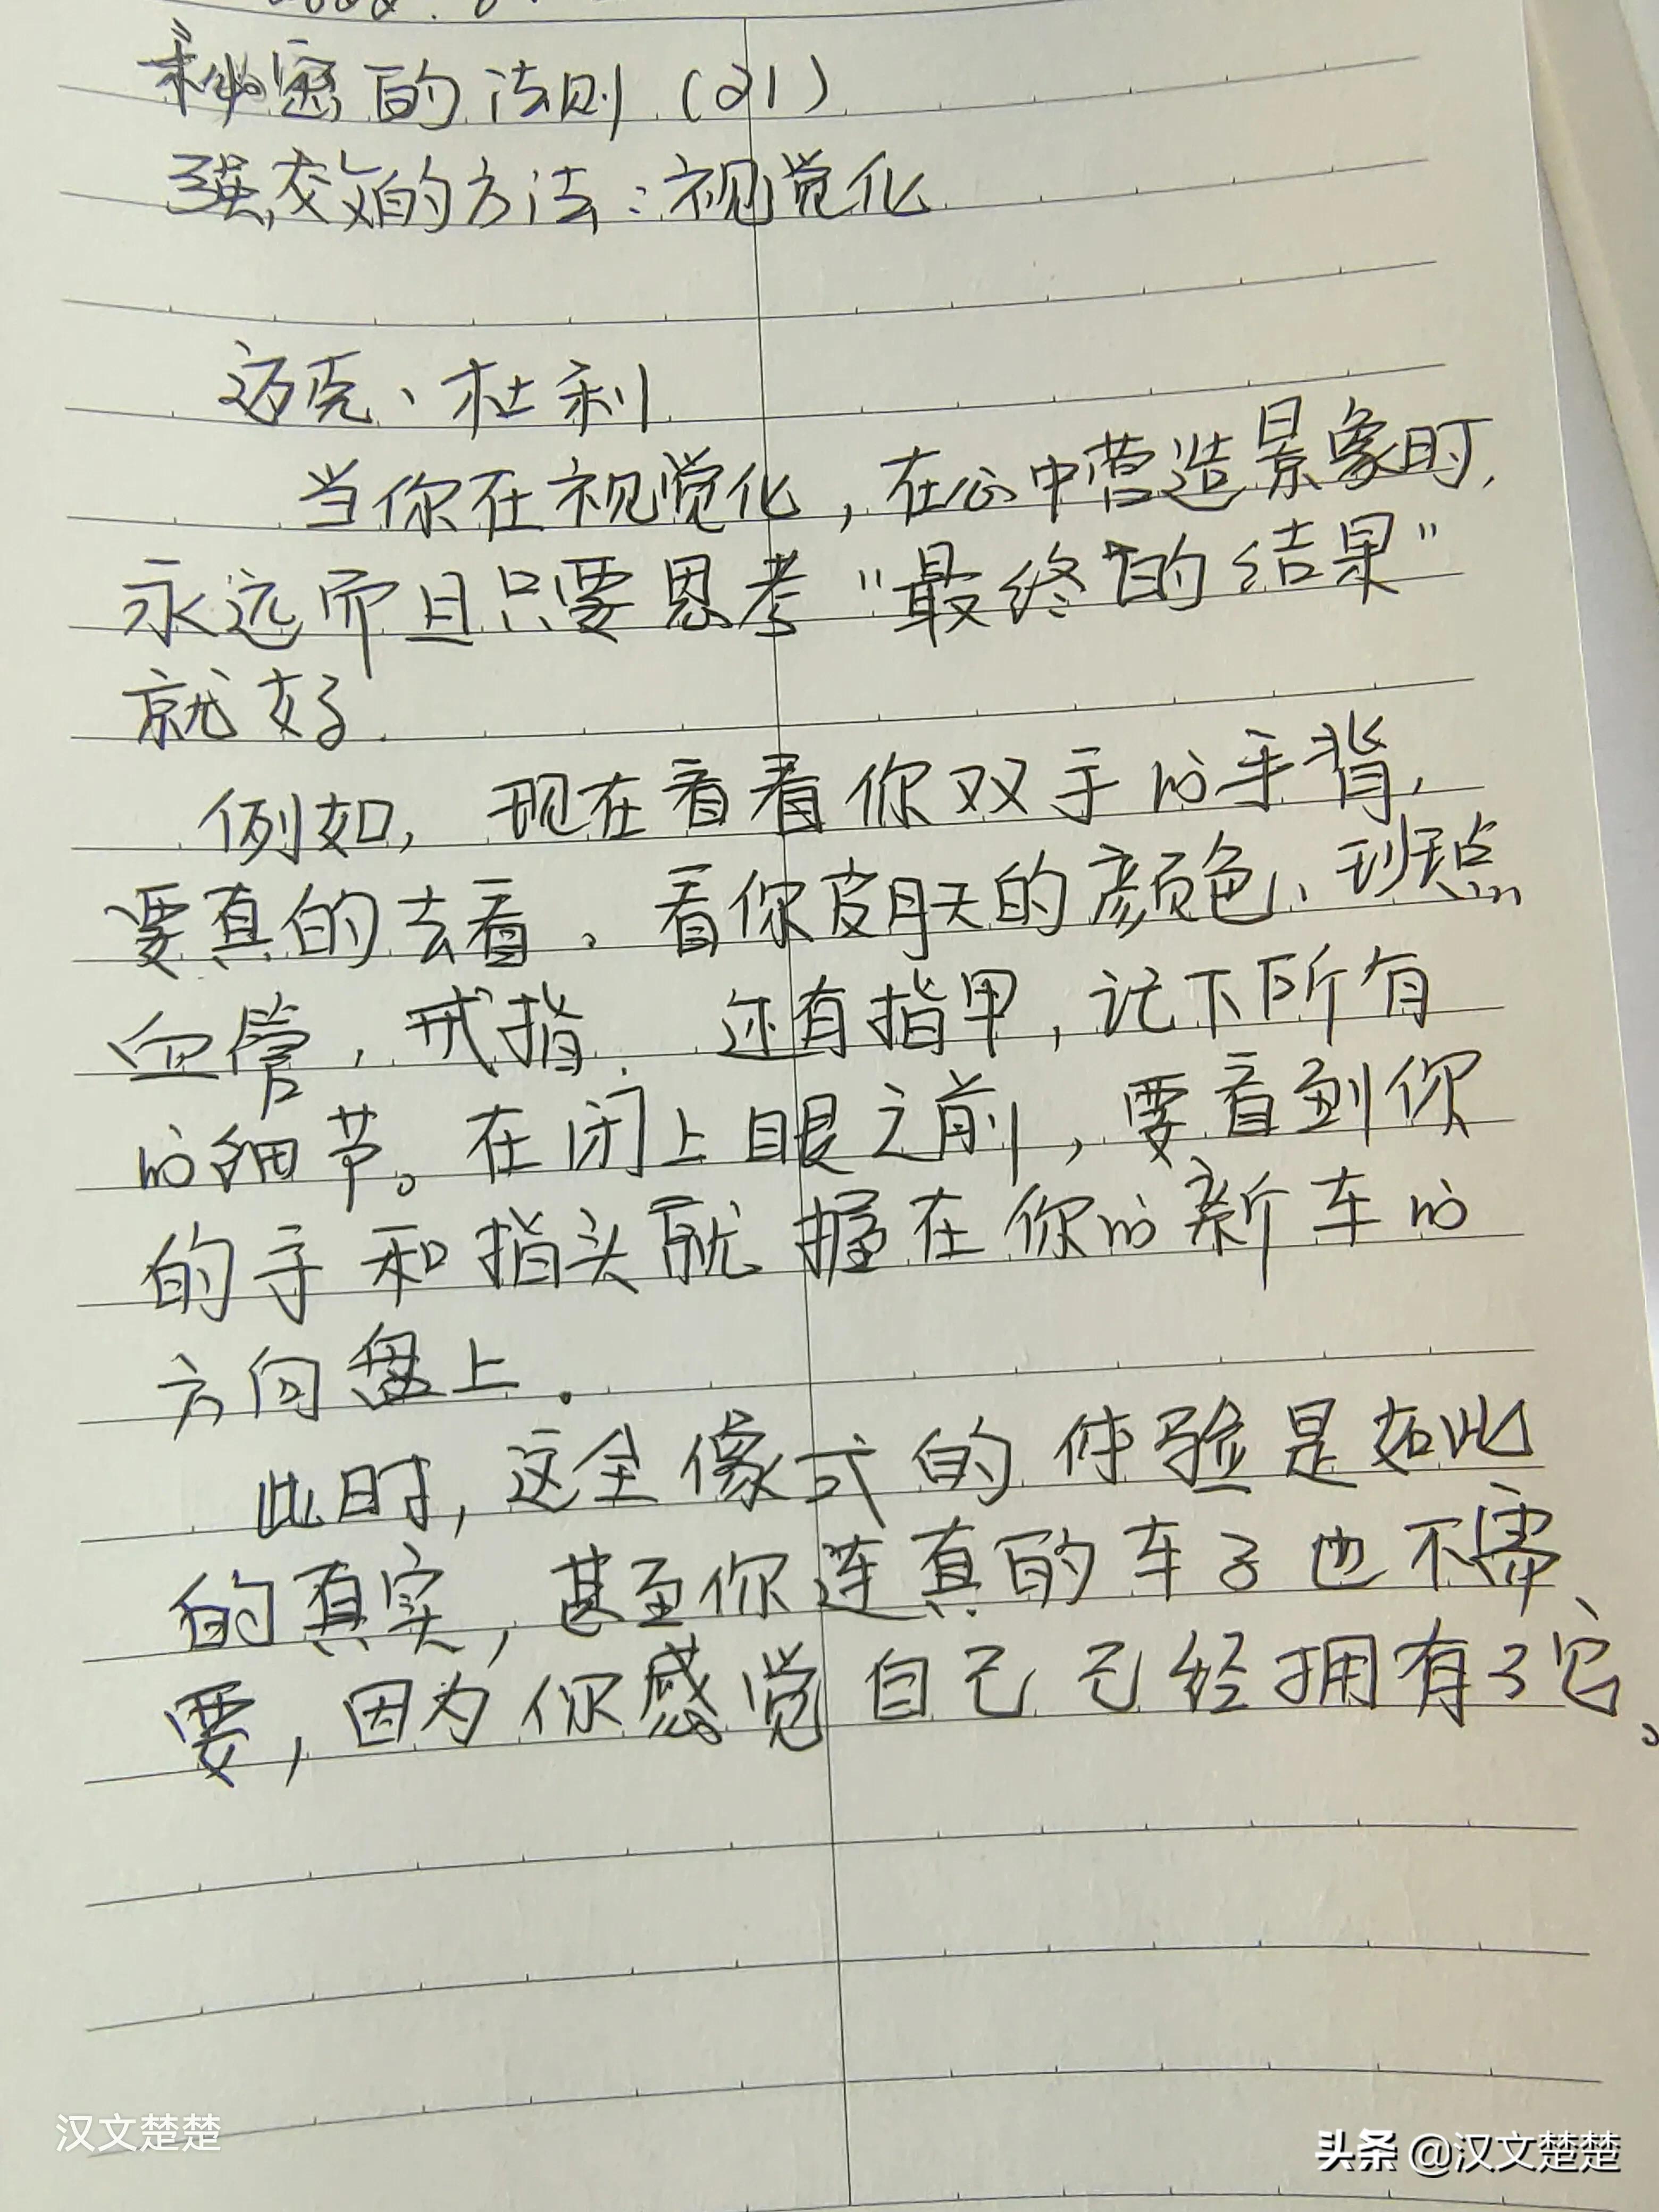 秘密的法则(21)
强效的方法:视觉化
迈克、杜利
当你在视觉化,在心中营造景象时,
永远而且只要思考“最终的结果”
就好.
例如,现在看看你双手的手背,
要真的去看。看你皮肤的颜色、斑点
血管,戒指.还有指甲,记下所有
的细节。在闭上眼之前,要看到你
的手和指头就握在你的新车的
方向盘上.
此时,这全像式的体验是如此
的真实,甚至你连真的车子也不需
要,因为你感觉自己已经拥有了它。
汉文楚楚
头条@汉文楚楚